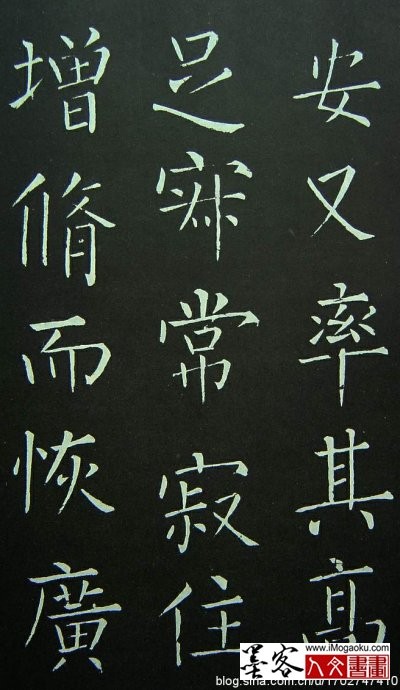 安又率其高
足常寂住
增脩而恢廣
墨客
www.iMogaoku.com
人文書畫
blog.sina.com.cn/u/1702747410